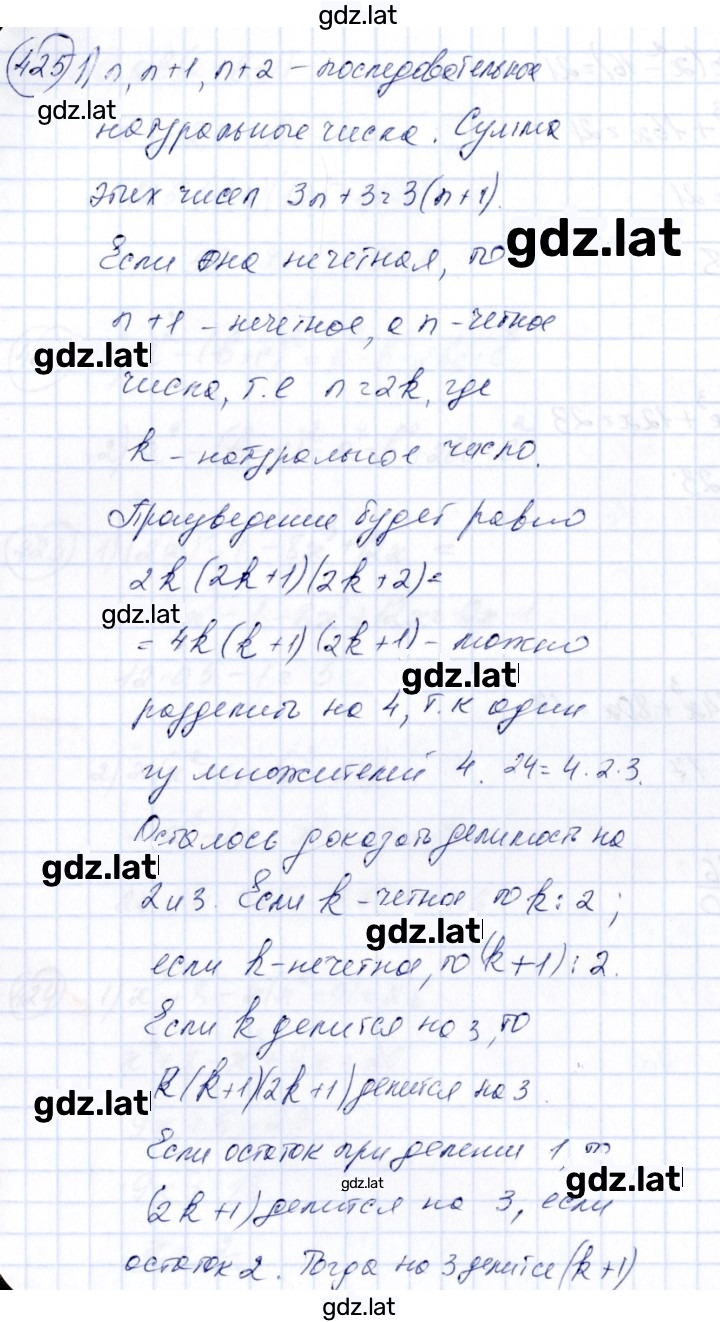 gdz.lat
425 1) n, n+1, n+2 – последовательное
gdz.lat
натуральные числа. Сумма
этих чисел 3n+3=3(n+1).
gdz.lat
Если она нечетная, то
n+1 – нечетное, а n – четное
gdz.lat
числа, т.е n=2k, где
k – натуральное число.
Произведение будет равно
2k(2k+1)(2k+2)=
gdz.lat
=4k(k+1)(2k+1) – можно
gdz.lat
разделить на 4, т.к один
из множителей 4. 24=4·2·3.
Осталось доказать делимость на
gdz.lat
2 и 3. Если k – четное то k⋮2;
gdz.lat
если k – нечетное, то (k+1)⋮2.
Если k делится на 3, то
k(k+1)(2k+1) делится на 3.
gdz.lat
Если остаток при делении 1, то
gdz.lat
gdz.lat
(2k+1) делится на 3, если
остаток 2. Тогда на 3 делится (k+1)
gdz.lat